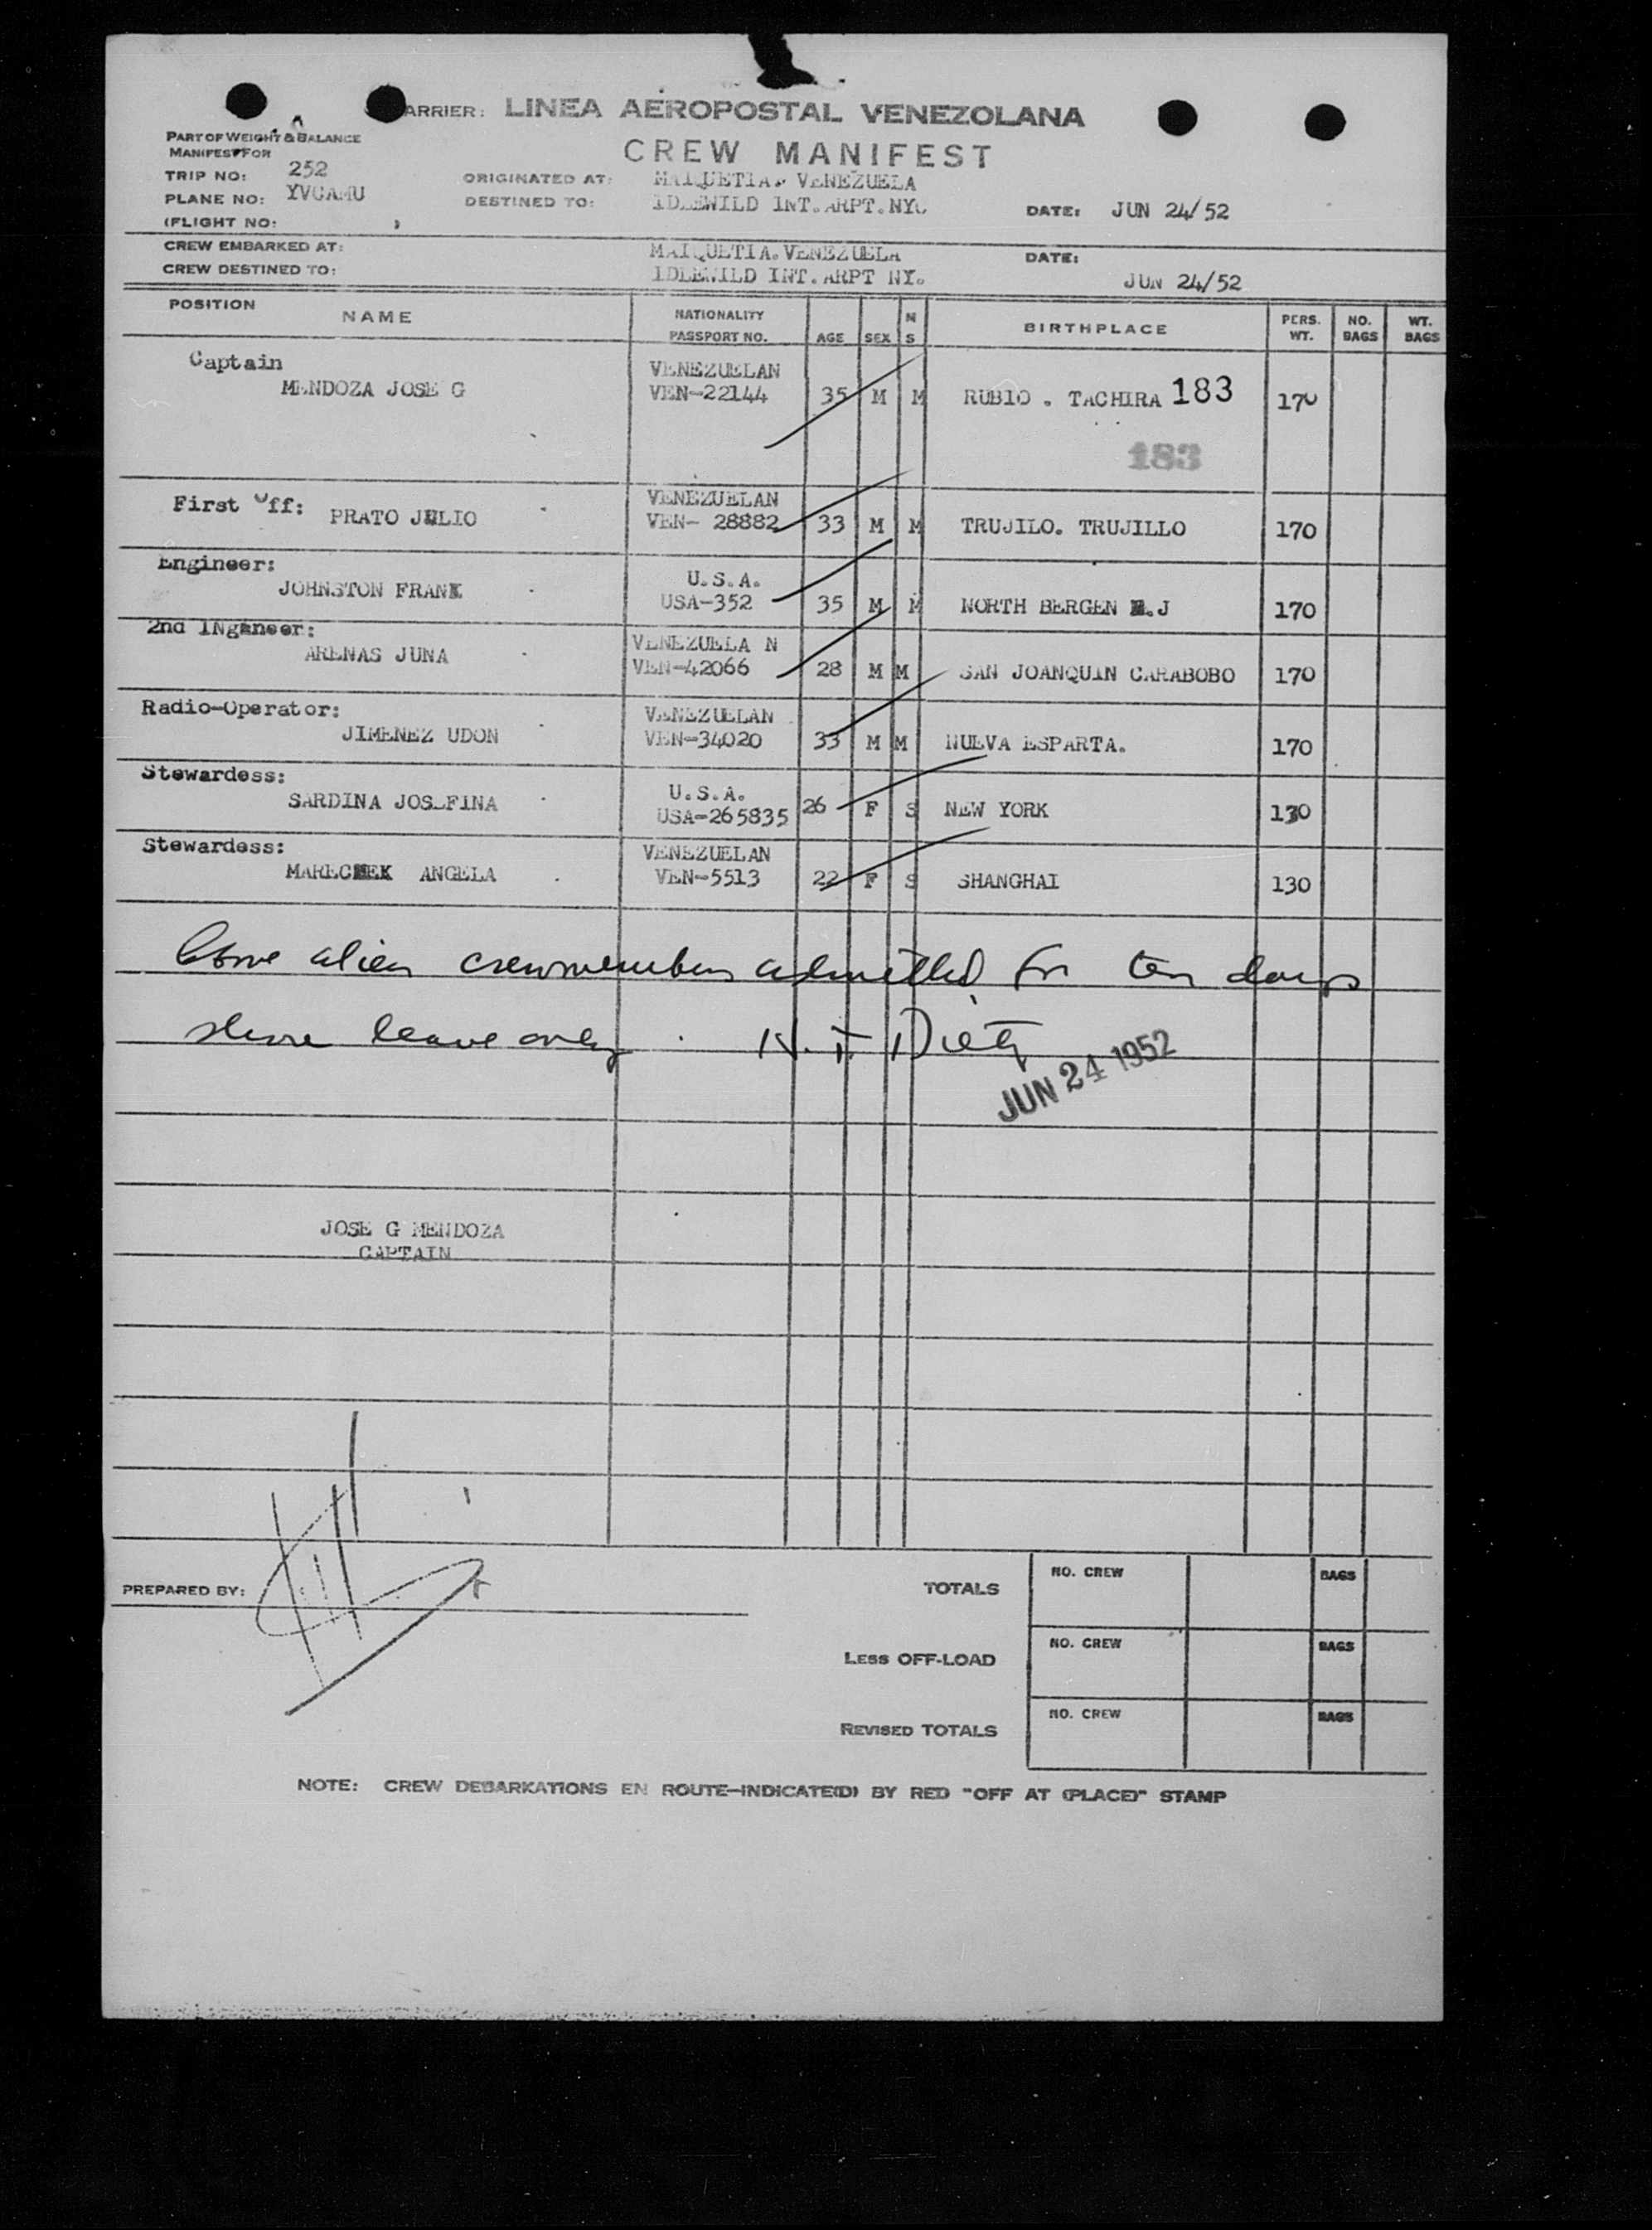 ARRIER: LINEA AEROPOSTAL VENEZOLANA
CREW MANIFEST
PART OF WEIGHT & BALANCE
MANIFEST FOR
TRIP NO: 252
PLANE NO: YVCAMU
(FLIGHT NO: )
ORIGINATED AT: MAIQUETIA. VENEZUELA
DESTINED TO: IDLEWILD INT.ARPT.NYC
DATE: JUN 24/52
CREW EMBARKED AT: MAIQUETIA.VENEZUELA
CREW DESTINED TO: IDLEWILD INT.ARPT NY.
DATE: JUN 24/52
POSITION NAME NATIONALITY PASSPORT NO. AGE SEX M S BIRTHPLACE PERS. WT. NO. BAGS WT. BAGS
Captain VENEZUELAN
MENDOZA JOSE G VEN-22144 35 M M RUBIO . TACHIRA 183 170
183
First Off: VENEZUELAN
PRATO JULIO VEN- 28882 33 M M TRUJILO. TRUJILLO 170
Engineer: U.S.A.
JOHNSTON FRANK USA-352 35 M M NORTH BERGEN N.J 170
2nd INganeer: VENEZUELA N
ARENAS JUNA VEN-42066 28 M M SAN JOANQUIN CARABOBO 170
Radio-Operator: VENEZUELAN
JIMENEZ UDON VEN-34020 33 M M NUEVA ESPARTA. 170
Stewardess: U.S.A.
SARDINA JOSEFINA USA-265835 26 F S NEW YORK 130
Stewardess: VENEZUELAN
MARECHEK ANGELA VEN-5513 22 F S SHANGHAI 130
Above alien crewmembers admitted for ten days
shore leave only.
JUN 24 1952
JOSE G MENDOZA
CAPTAIN
PREPARED BY:
TOTALS NO. CREW BAGS
LESS OFF-LOAD NO. CREW BAGS
REVISED TOTALS NO. CREW BAGS
NOTE: CREW DEBARKATIONS EN ROUTE—INDICATE(D) BY RED "OFF AT (PLACE)" STAMP